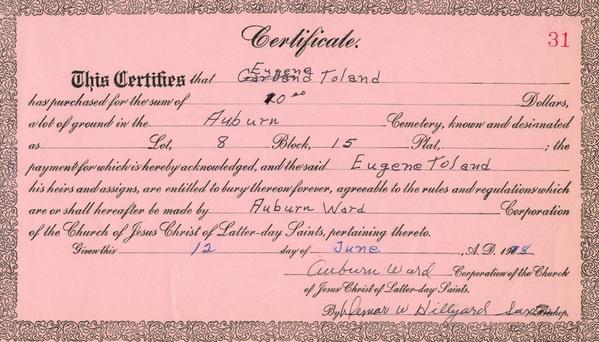 Certificate.
31
Eugene
This Certifies that Garland Toland
has purchased for the sum of 10 00 Dollars,
a lot of ground in the Auburn Cemetery, known and desianated
as Lot, 8 Block, 15 Plat, ; the
payment for which is hereby acknowledged, and the said Eugene Toland
his heirs and assigns, are entitled to bury thereon forever, agreeable to the rules and regulations which
are or shall hereafter be made by Auburn Ward Corporation
of the Church of Jesus Christ of Latter-day Saints, pertaining thereto.
Given this 12 day of June, A.D. 1978
Auburn Ward Corporation of the Church
of Jesus Christ of Latter-day Saints.
By Demar W Hillyard Bishop.